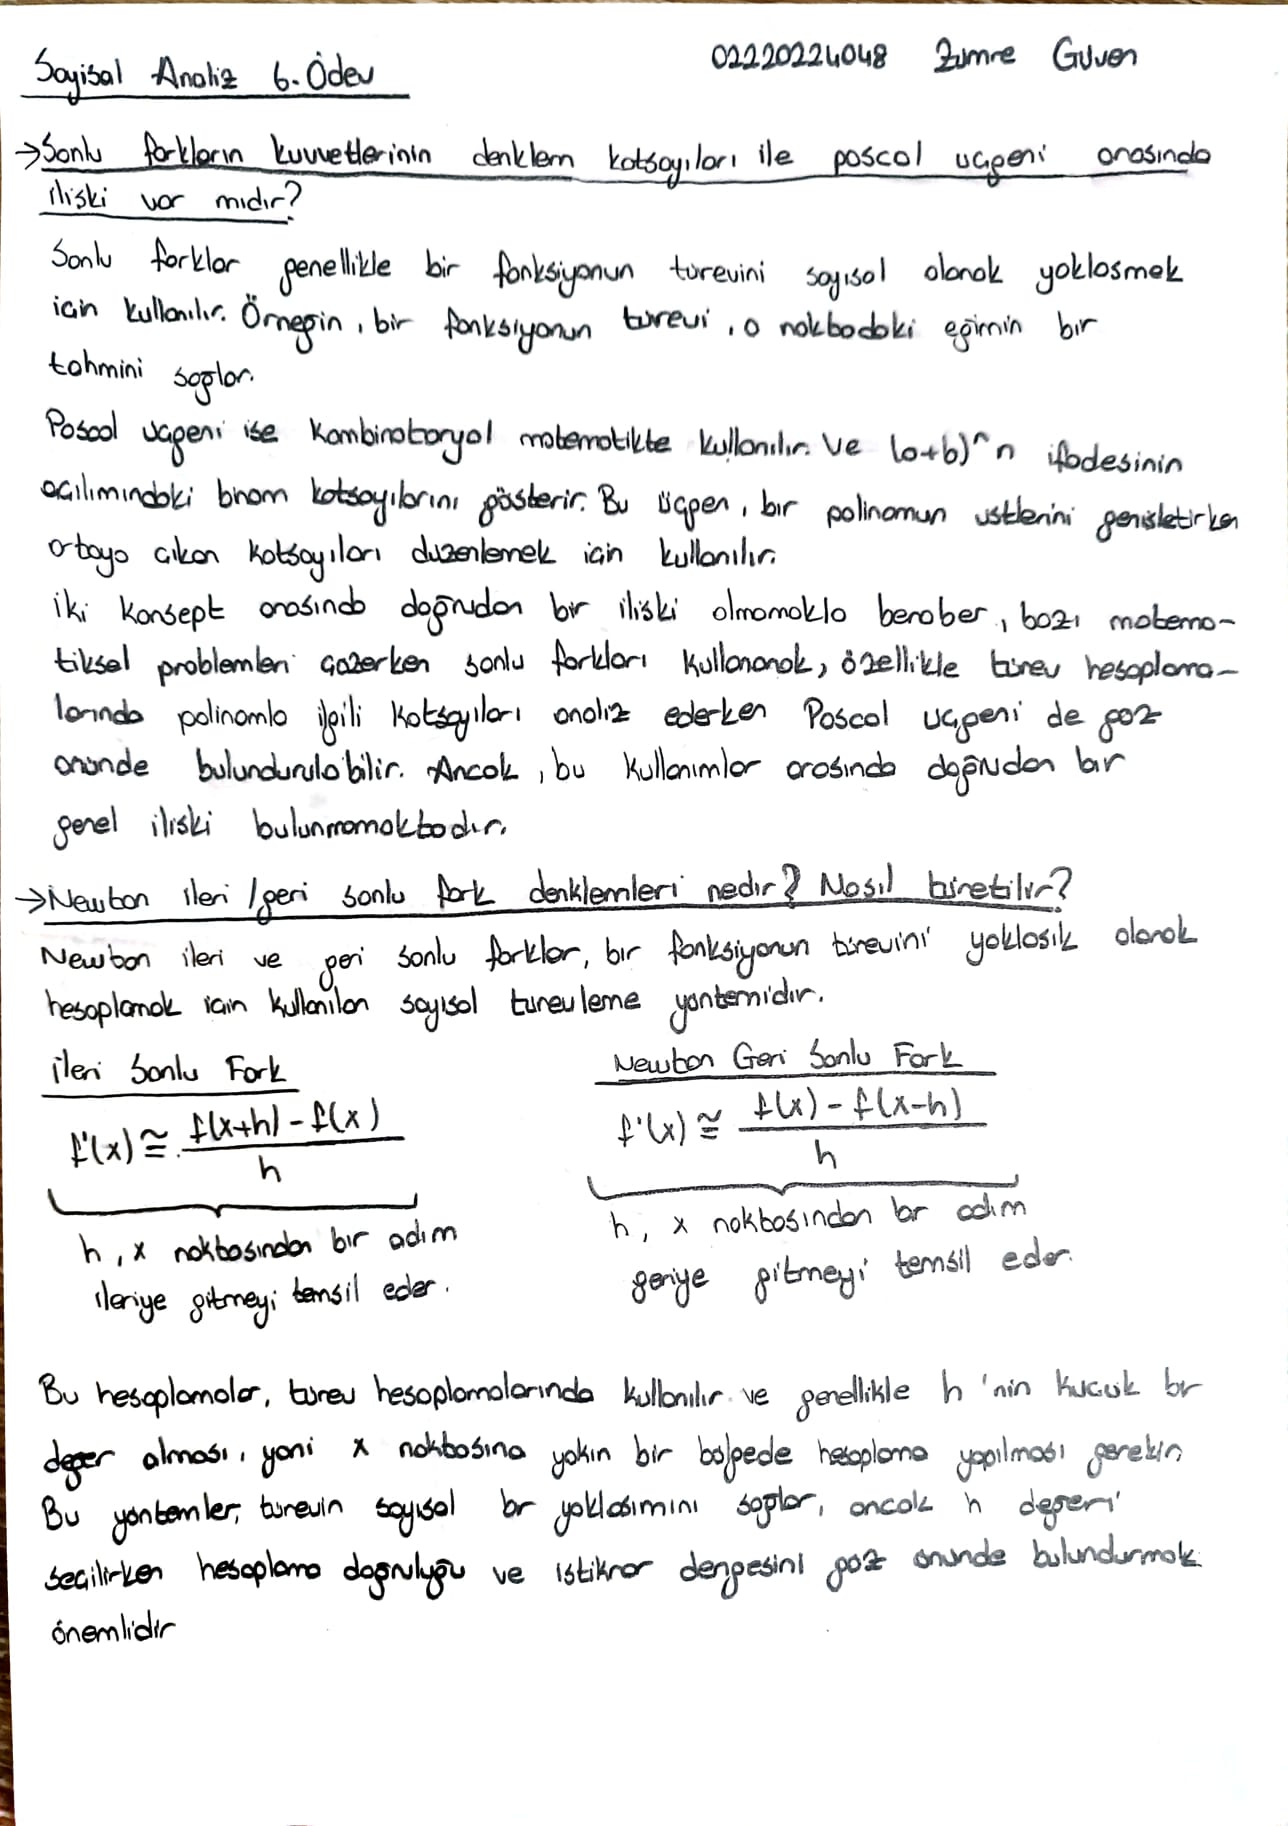 Sayısal Analiz 6. Ödev
02220224048 Zümre Güven
→Sonlu farkların kuvvetlerinin denklem katsayıları ile pascal üçgeni arasında
ilişki var mıdır?
Sonlu farklar genellikle bir fonksiyonun türevini sayısal olarak yaklaşmek
için kullanılır. Örneğin, bir fonksiyonun türevi, o noktadaki eğimin bir
tahmini sağlar.
Pascal üçgeni ise kombinatoryal matematikte kullanılır. Ve (a+b)^n ifadesinin
açılımındaki binom katsayılarını gösterir. Bu üçgen, bir polinomun üstlerini genişletirken
ortaya çıkan katsayıları düzenlemek için kullanılır.
İki konsept arasında doğrudan bir ilişki olmamakla beraber, bazı matema-
tiksel problemleri çözerken sonlu farkları kullanarak, özellikle türev hesaplama-
larında polinomla ilgili katsayıları analiz ederken Pascal üçgeni de göz
önünde bulundurulabilir. Ancak, bu kullanımlar arasında doğrudan bir
genel ilişki bulunmamaktadır.
→Newton ileri/geri sonlu fark denklemleri nedir? Nasıl türetilir?
Newton ileri ve geri sonlu farklar, bir fonksiyonun türevini yaklaşık olarak
hesaplamak için kullanılan sayısal türevleme yöntemidir.
İleri Sonlu Fark
f'(x) ≅ f(x+h) - f(x) / h
h, x noktasından bir adım
ileriye gitmeyi temsil eder.
Newton Geri Sonlu Fark
f'(x) ≅ f(x) - f(x-h) / h
h, x noktasından bir adım
geriye gitmeyi temsil eder.
Bu hesaplamalar, türev hesaplamalarında kullanılır ve genellikle h'nin küçük bir
değer alması, yani x noktasına yakın bir bölgede hesaplama yapılması gerekir.
Bu yöntemler, türevin sayısal bir yaklaşımını sağlar, ancak h değeri
seçilirken hesaplama doğruluğu ve istikrar dengesini göz önünde bulundurmak
önemlidir